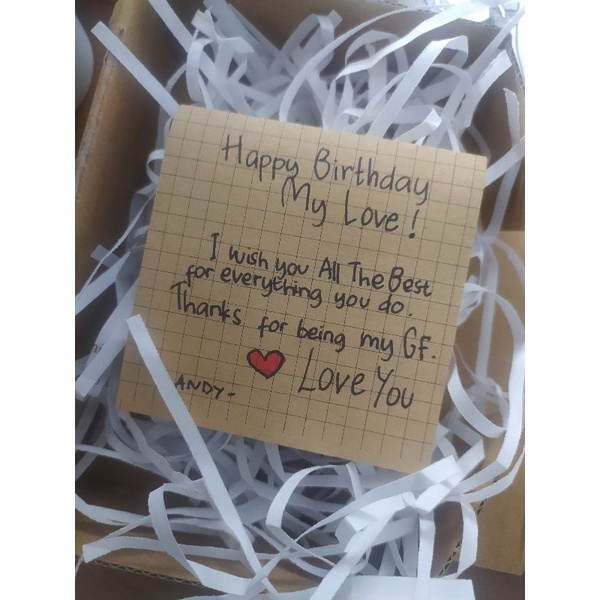 Happy Birthday
My Love!
I wish you All The Best
for everything you do.
Thanks for being my GF.
Love You
ANDY-